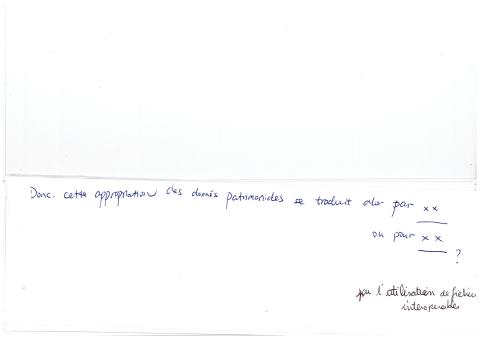 Donc. cette appropriation des donnés patrimoniales se traduit alor par xx
ou pour xx
?
par l'utilisation de fichiers
interopérables